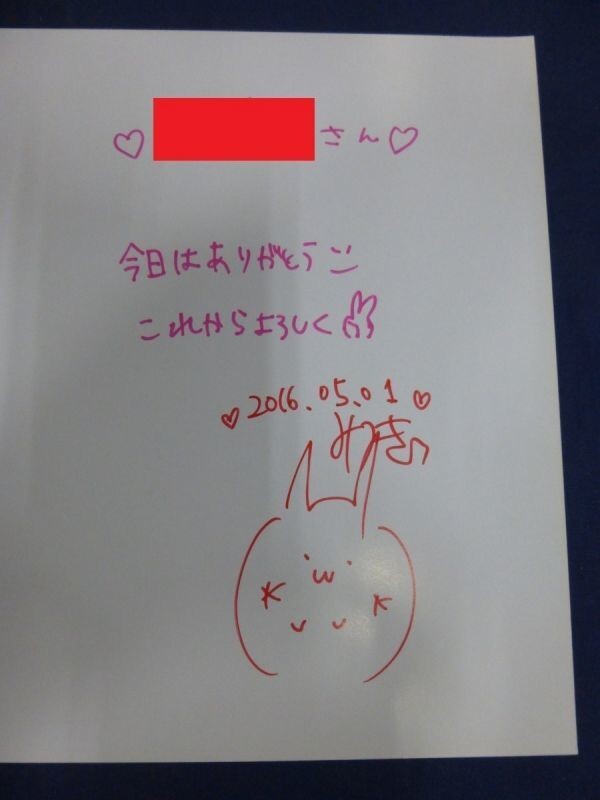 ♡ さん♡
今日はありがとう
これからよろしく
♡2016.05.01♡